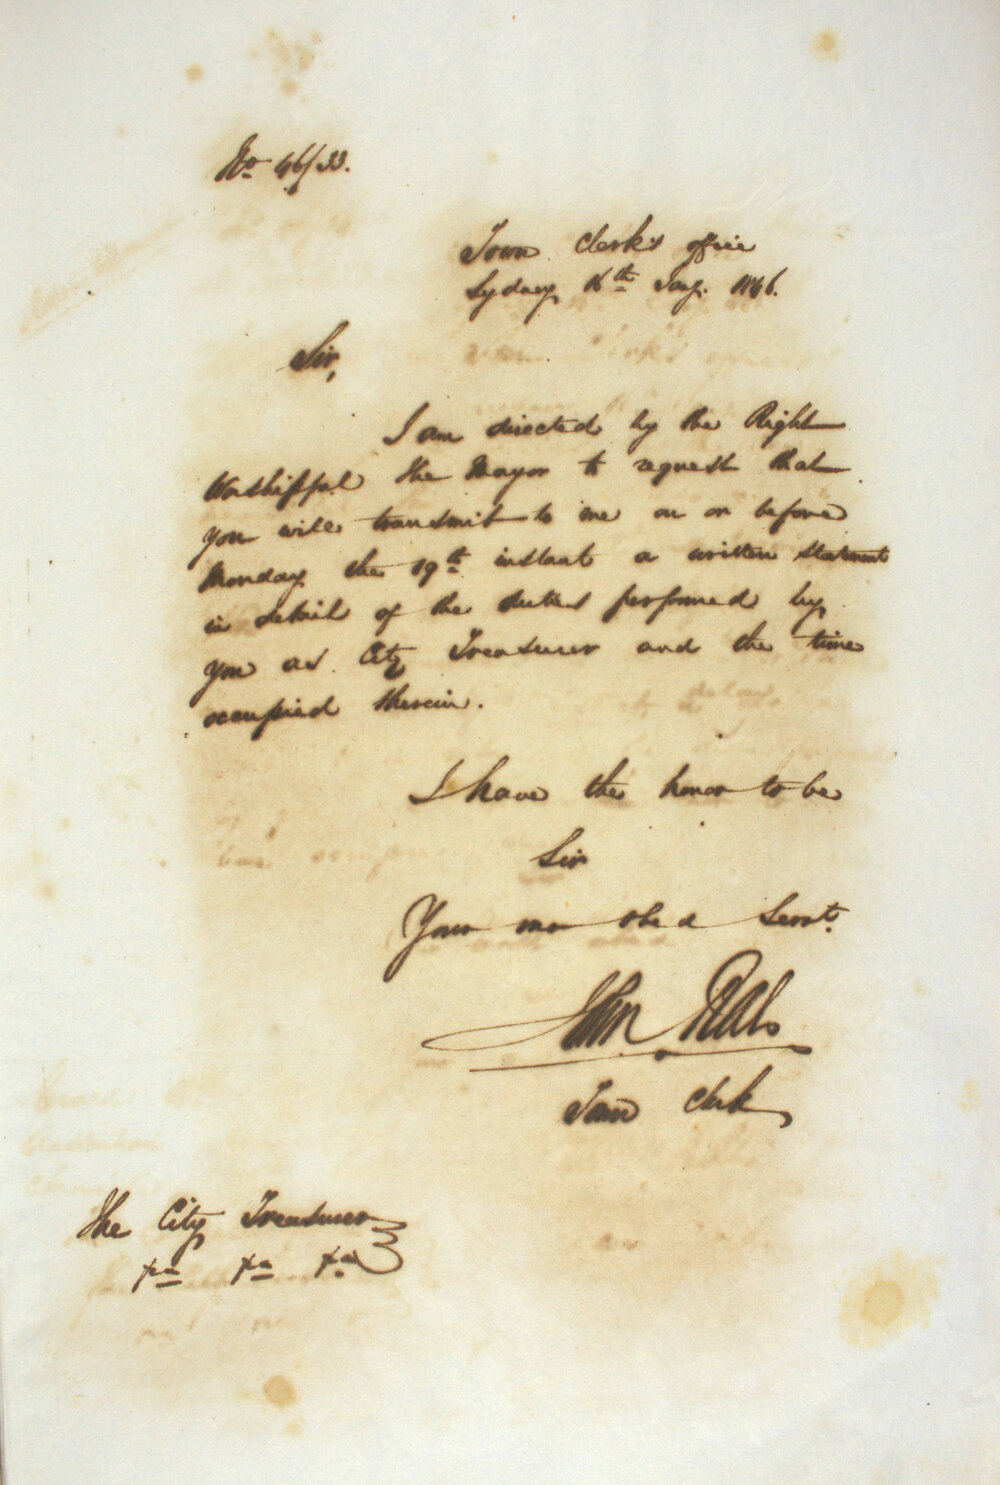 No. 46/33.
Town Clerk's office
Sydney 16th Jany. 1846.
Sir,
I am directed by the Right
Worshipful the Mayor to request that
you will transmit to me on or before
Monday the 19th instant a written statement
in detail of the duties performed by
you as City Treasurer and the time
occupied therein.
I have the honor to be
Sir
Your mo obed Servt.
John Rae
Town Clerk
The City Treasurer